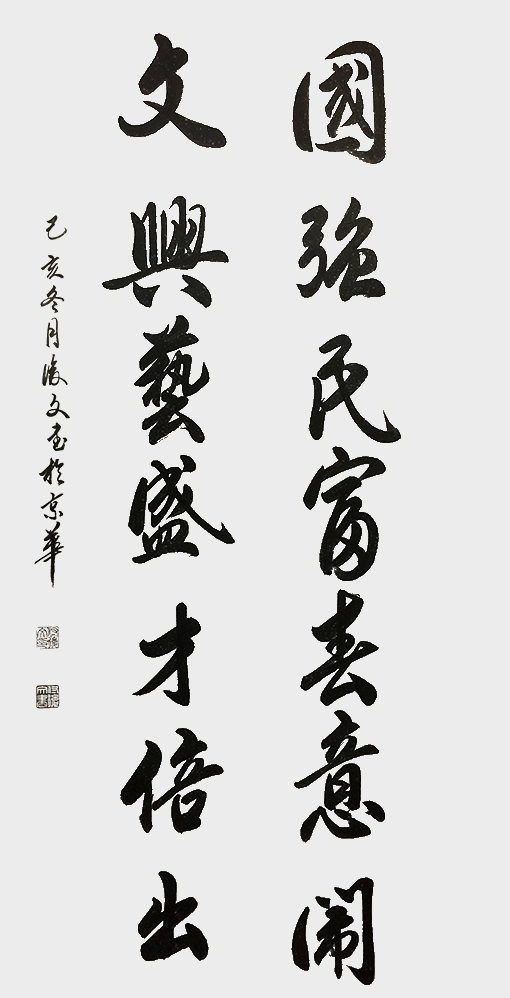 國強民富春意鬧
文興藝盛才倍出
己亥冬月俊文書於京華